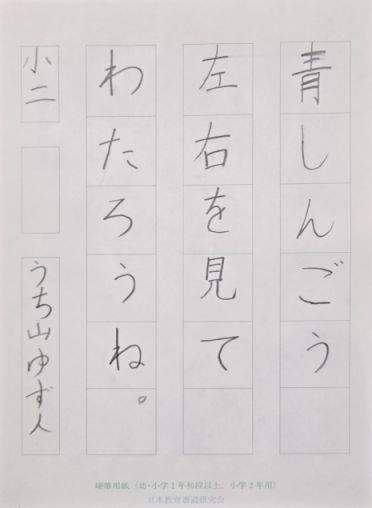 青しんごう
左右を見て
わたろうね。
小二
うち山ゆず人
硬筆用紙（幼・小学1年初段以上、小学2年用）
日本教育書道研究会